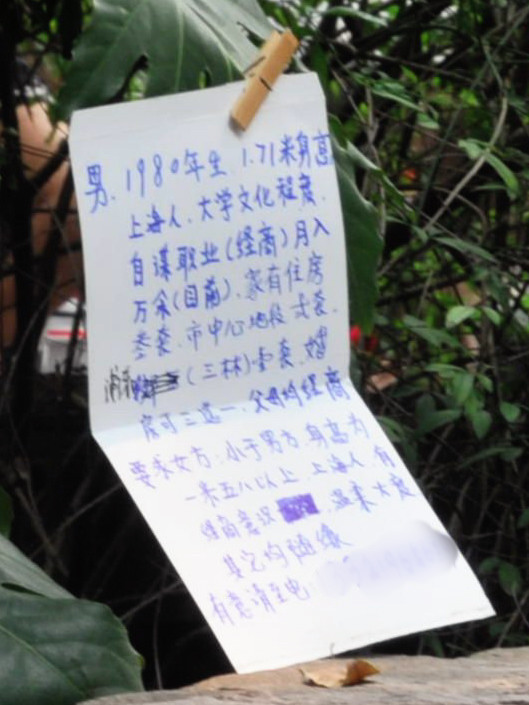 男.1980年生.1.71米身高
上海人.大学文化程度.
自谋职业(经商)月入
万余(目前).家有住房
叁套.市中心地段弍套.
(三林)壹套.婚
房可三选一.父母均经商
要求女方:小于男方.身高为
一米五八以上.上海人.有
经商意识 温柔大度
其它均随缘
有意请至电: